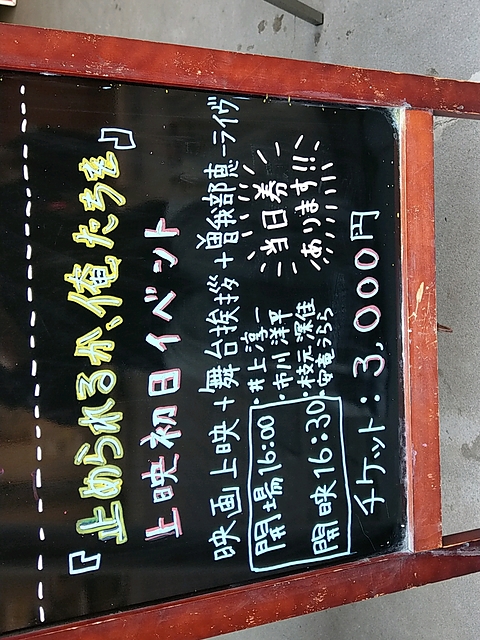 『止められるか、俺たちを』
上映初日イベント
映画上映+舞台挨拶+曽我部恵一ライヴ
開場16:00
開映16:30
・井上淳一
・市川洋平
・枝元深佳
・安竜うらら
当日券
あります!!
チケット:3,000円